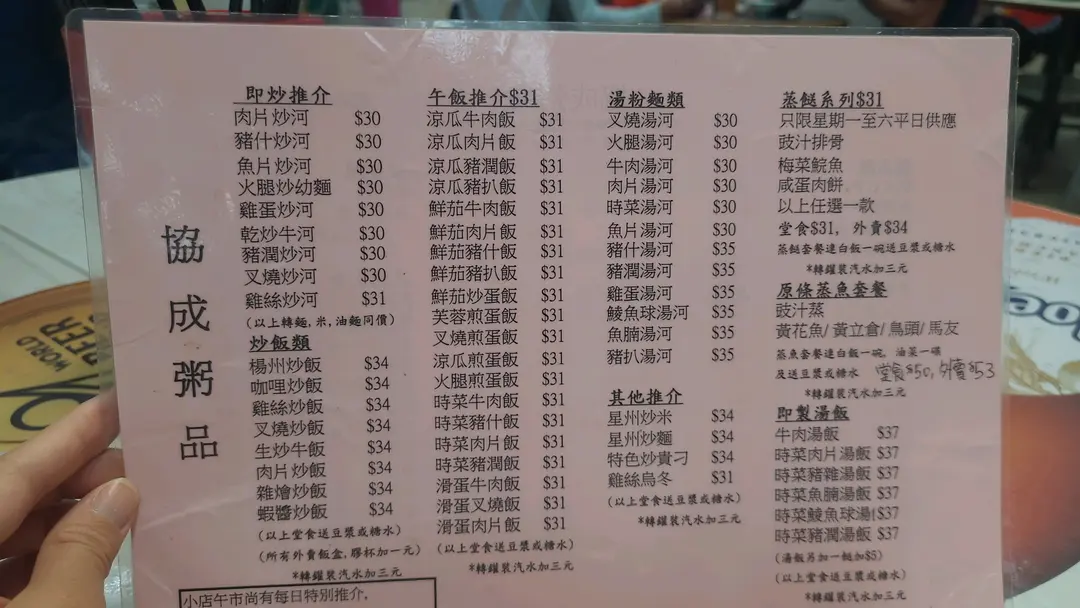 協成粥品
即炒推介
肉片炒河 $30
豬什炒河 $30
魚片炒河 $30
火腿炒幼麵 $30
雞蛋炒河 $30
乾炒牛河 $30
豬潤炒河 $30
叉燒炒河 $30
雞絲炒河 $31
(以上轉麵,米,油麵同價)
炒飯類
楊州炒飯 $34
咖哩炒飯 $34
雞絲炒飯 $34
叉燒炒飯 $34
生炒牛飯 $34
肉片炒飯 $34
雜燴炒飯 $34
蝦醬炒飯 $34
(以上堂食送豆漿或糖水)
(所有外賣飯盒,膠杯加一元)
*轉罐裝汽水加三元
小店午市尚有每日特別推介.
午飯推介$31
涼瓜牛肉飯 $31
涼瓜肉片飯 $31
涼瓜豬潤飯 $31
涼瓜豬扒飯 $31
鮮茄牛肉飯 $31
鮮茄肉片飯 $31
鮮茄豬什飯 $31
鮮茄豬扒飯 $31
鮮茄炒蛋飯 $31
芙蓉煎蛋飯 $31
叉燒煎蛋飯 $31
涼瓜煎蛋飯 $31
火腿煎蛋飯 $31
時菜牛肉飯 $31
時菜豬什飯 $31
時菜肉片飯 $31
時菜豬潤飯 $31
滑蛋牛肉飯 $31
滑蛋叉燒飯 $31
滑蛋肉片飯 $31
(以上堂食送豆漿或糖水)
*轉罐裝汽水加三元
湯粉麵類
叉燒湯河 $30
火腿湯河 $30
牛肉湯河 $30
肉片湯河 $30
時菜湯河 $30
魚片湯河 $30
豬什湯河 $35
豬潤湯河 $35
雞蛋湯河 $35
鯪魚球湯河 $35
魚腩湯河 $35
豬扒湯河 $35
其他推介
星州炒米 $34
星州炒麵 $34
特色炒貴刁 $34
雞絲烏冬 $31
(以上堂食送豆漿或糖水)
*轉罐裝汽水加三元
蒸餸系列$31
只限星期一至六平日供應
豉汁排骨
梅菜鯇魚
咸蛋肉餅
以上任選一款
堂食$31, 外賣$34
蒸餸套餐連白飯一碗送豆漿或糖水
*轉罐裝汽水加三元
原條蒸魚套餐
豉汁蒸
黃花魚/ 黃立倉/ 烏頭/ 馬友
蒸魚套餐連白飯一碗, 油菜一碟
及送豆漿或糖水 堂食$50,外賣$53
*轉罐裝汽水加三元
即製湯飯
牛肉湯飯 $37
時菜肉片湯飯 $37
時菜豬雜湯飯 $37
時菜魚腩湯飯 $37
時菜鯪魚球湯 $37
時菜豬潤湯飯 $37
(湯飯另加一餸加$5)
(以上堂食送豆漿或糖水)
*轉罐裝汽水加三元
WORLD
BEER